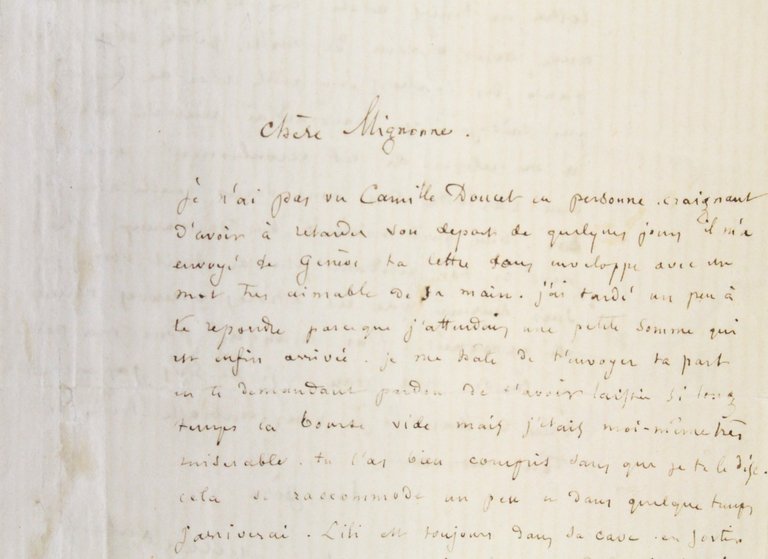 Chère Mignonne.
je n'ai pas vu Camille Doucet en personne. craignant
d'avoir à retarder son depart de quelques jours il m'a
envoyé de Genève ta lettre sans enveloppe avec un
mot tres aimable de sa main. j'ai tardé un peu à
te repondre parceque j'attendais une petite somme qui
est enfin arrivée. je me hate de t'envoyer ta part
en te demandant pardon de t'avoir laissée si long
temps la bourse vide mais j'etais moi-même très
miserable. tu l'as bien compris sans que je te le dise.
cela se raccommode un peu et dans quelque temps
j'arriverai. Lili est toujours dans sa cave. en